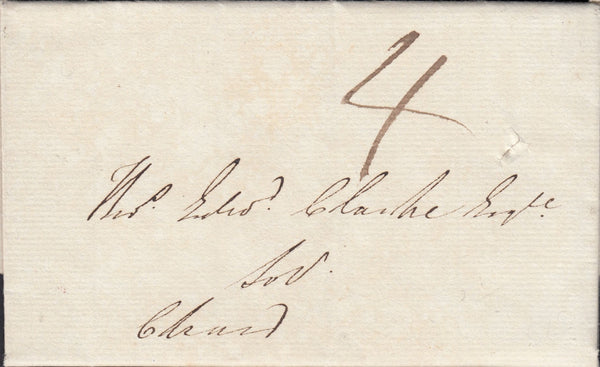 4
Thos. Edwd. Clarke Esqre.
Solr.
Chard